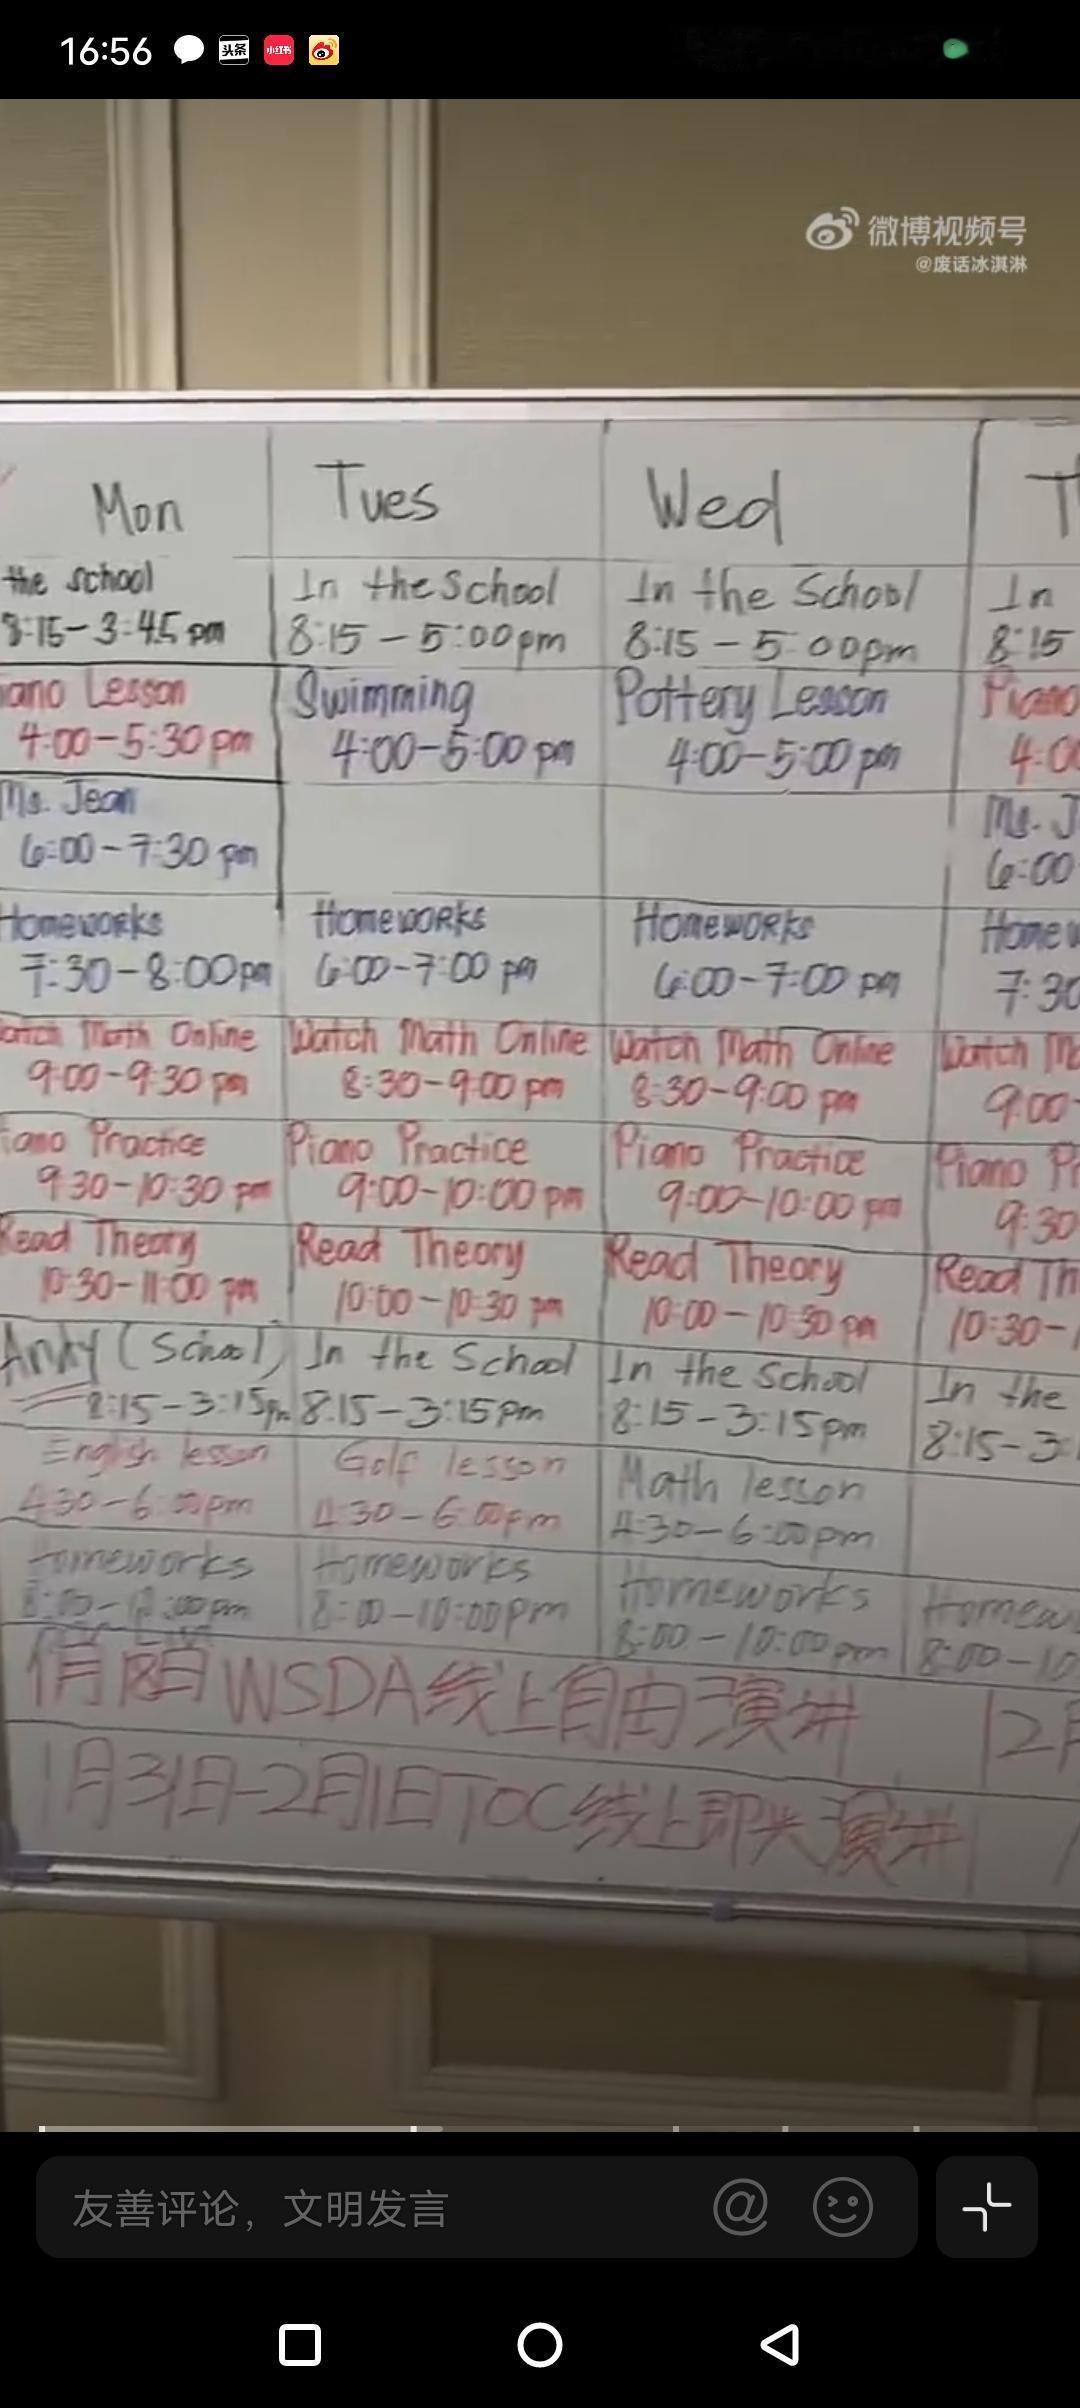 16:56
头条
小红书
微博视频号
@废话冰淇淋
Mon Tues Wed
the school In the School In the School In
8:15-3:45pm 8:15-5:00pm 8:15-5:00pm 8:15
iano Lesson Swimming Pottery Lesson Piano
4:00-5:30pm 4:00-5:00pm 4:00-5:00pm 4:00
Ms. Jean Ms. J
6:00-7:30pm 6:00
Homeworks Homeworks Homeworks Homew
7:30-8:00pm 6:00-7:00pm 6:00-7:00pm 7:30
atch Math Online Watch Math Online Watch Math Online Watch Ma
9:00-9:30pm 8:30-9:00pm 8:30-9:00pm 9:00-
iano Practice Piano Practice Piano Practice Piano Pr
9:30-10:30pm 9:00-10:00pm 9:00-10:00pm 9:30
Read Theory Read Theory Read Theory Read Th
10:30-11:00pm 10:00-10:30pm 10:00-10:30pm 10:30-
Andy (School) In the School In the School In the
8:15-3:15pm 8:15-3:15pm 8:15-3:15pm 8:15-3:
English lesson Golf lesson Math lesson
4:30-6:00pm 4:30-6:00pm 4:30-6:00pm
Homeworks Homeworks Homeworks Homew
8:00-10:00pm 8:00-10:00pm 8:00-10
WSDA线上自由演讲 12月
1月31日-2月1日TOC线上即兴演讲
友善评论，文明发言